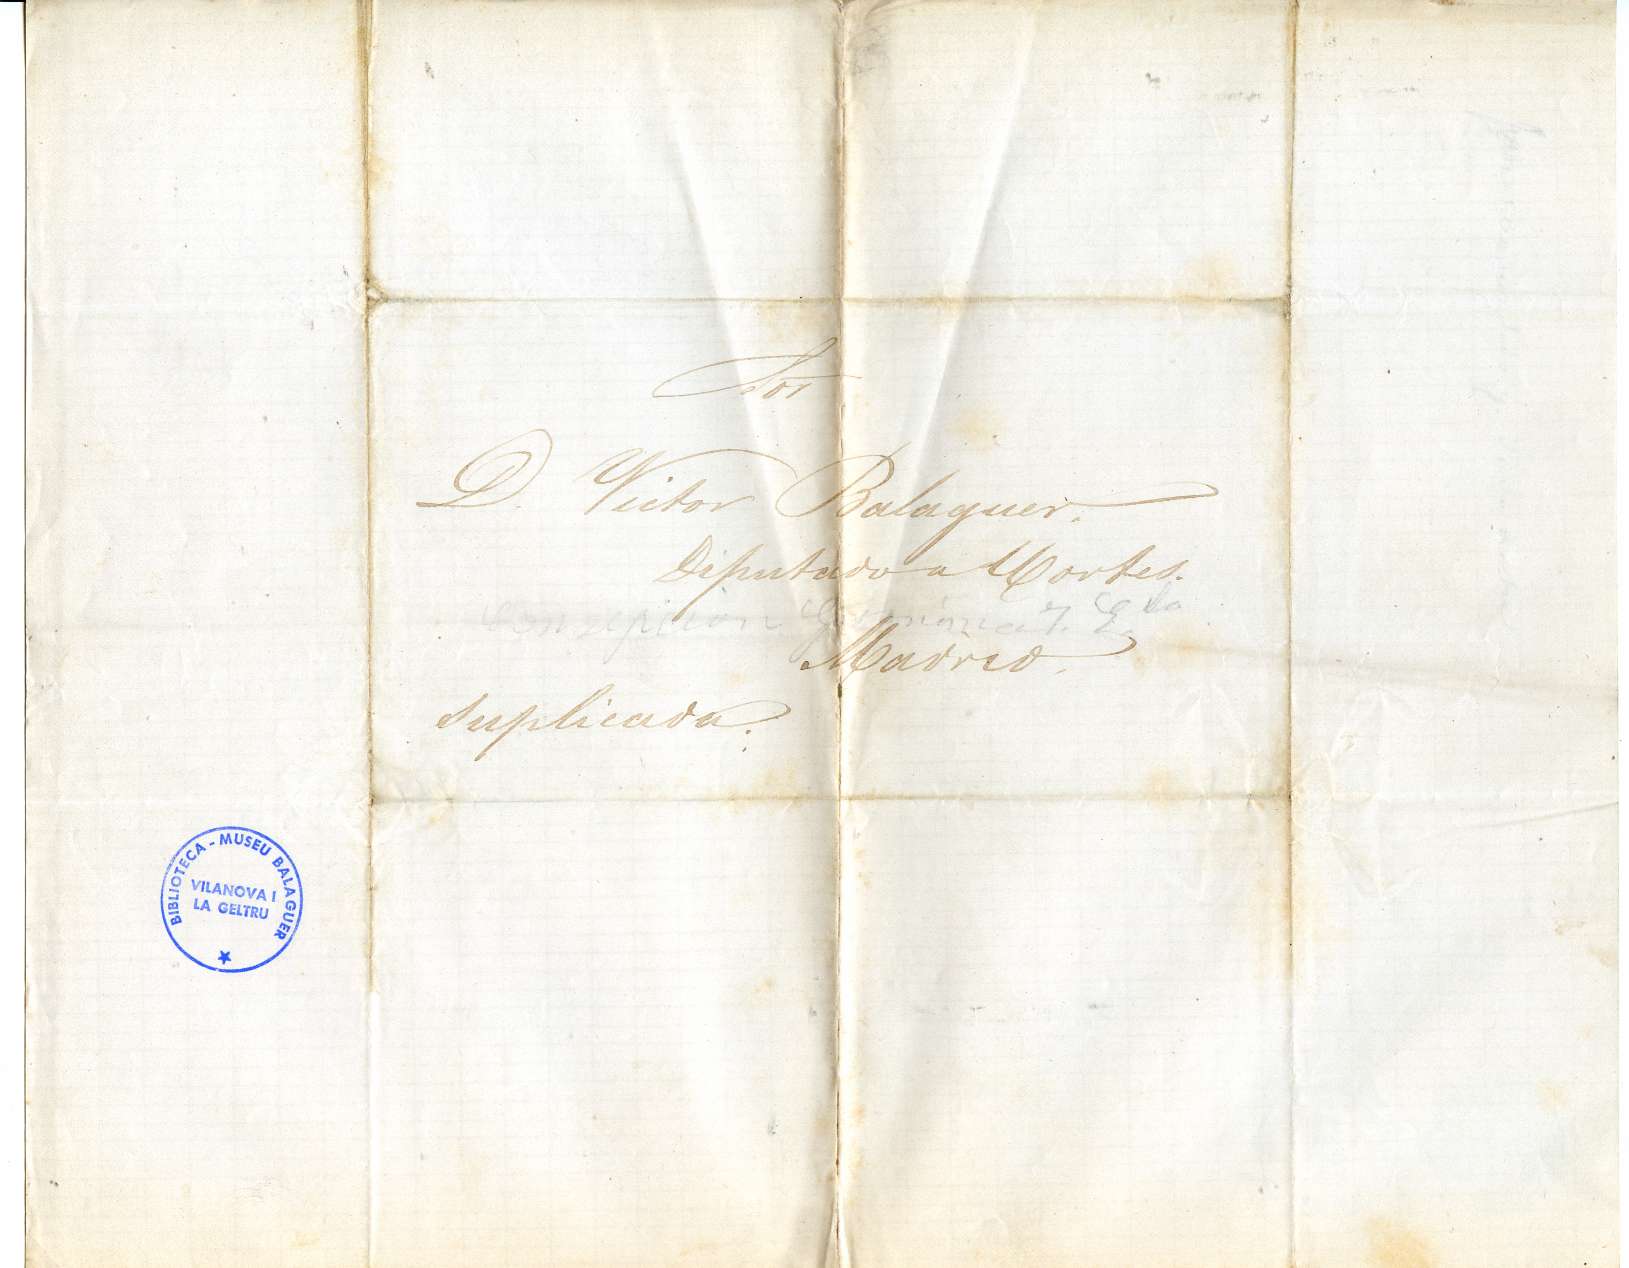 Sor
D. Victor Balaguer.
Diputado a Cortes.
Consepcion Geronima 7. 2.
Madrid.
Suplicada.
BIBLIOTECA - MUSEU BALAGUER
VILANOVA I
LA GELTRU